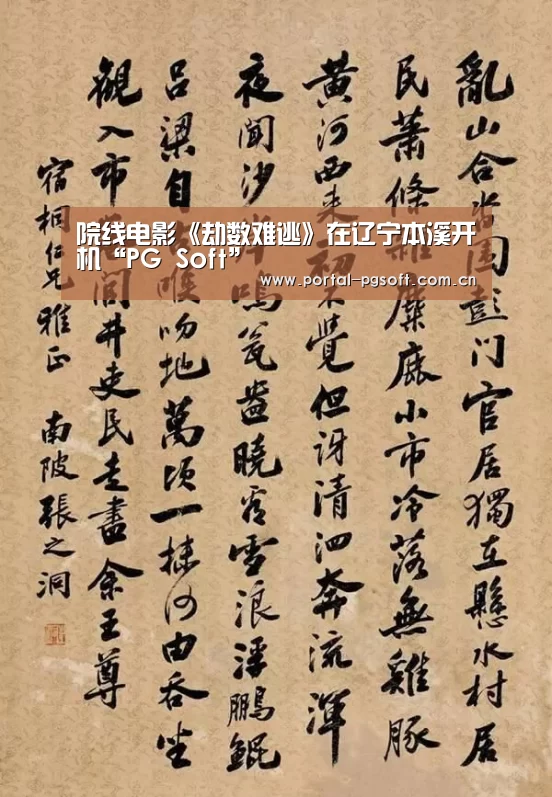 院线电影《劫数难逃》在辽宁本溪开
机“PG Soft”
www.portal-pgsoft.com.cn
亂山合沓圍彭门官居獨在懸水村居
民蕭條雜麋鹿小市冷落無雞豚
黄河西来初不覺但訝清泗奔流渾
夜聞沙岸鳴瓮盎曉看雪浪浮鵬鯤
吕梁自喉吻地萬頃一抹何由吞坐
觀入市閭井吏民走盡余王尊
宿桐仁兄雅正 南陂張之洞